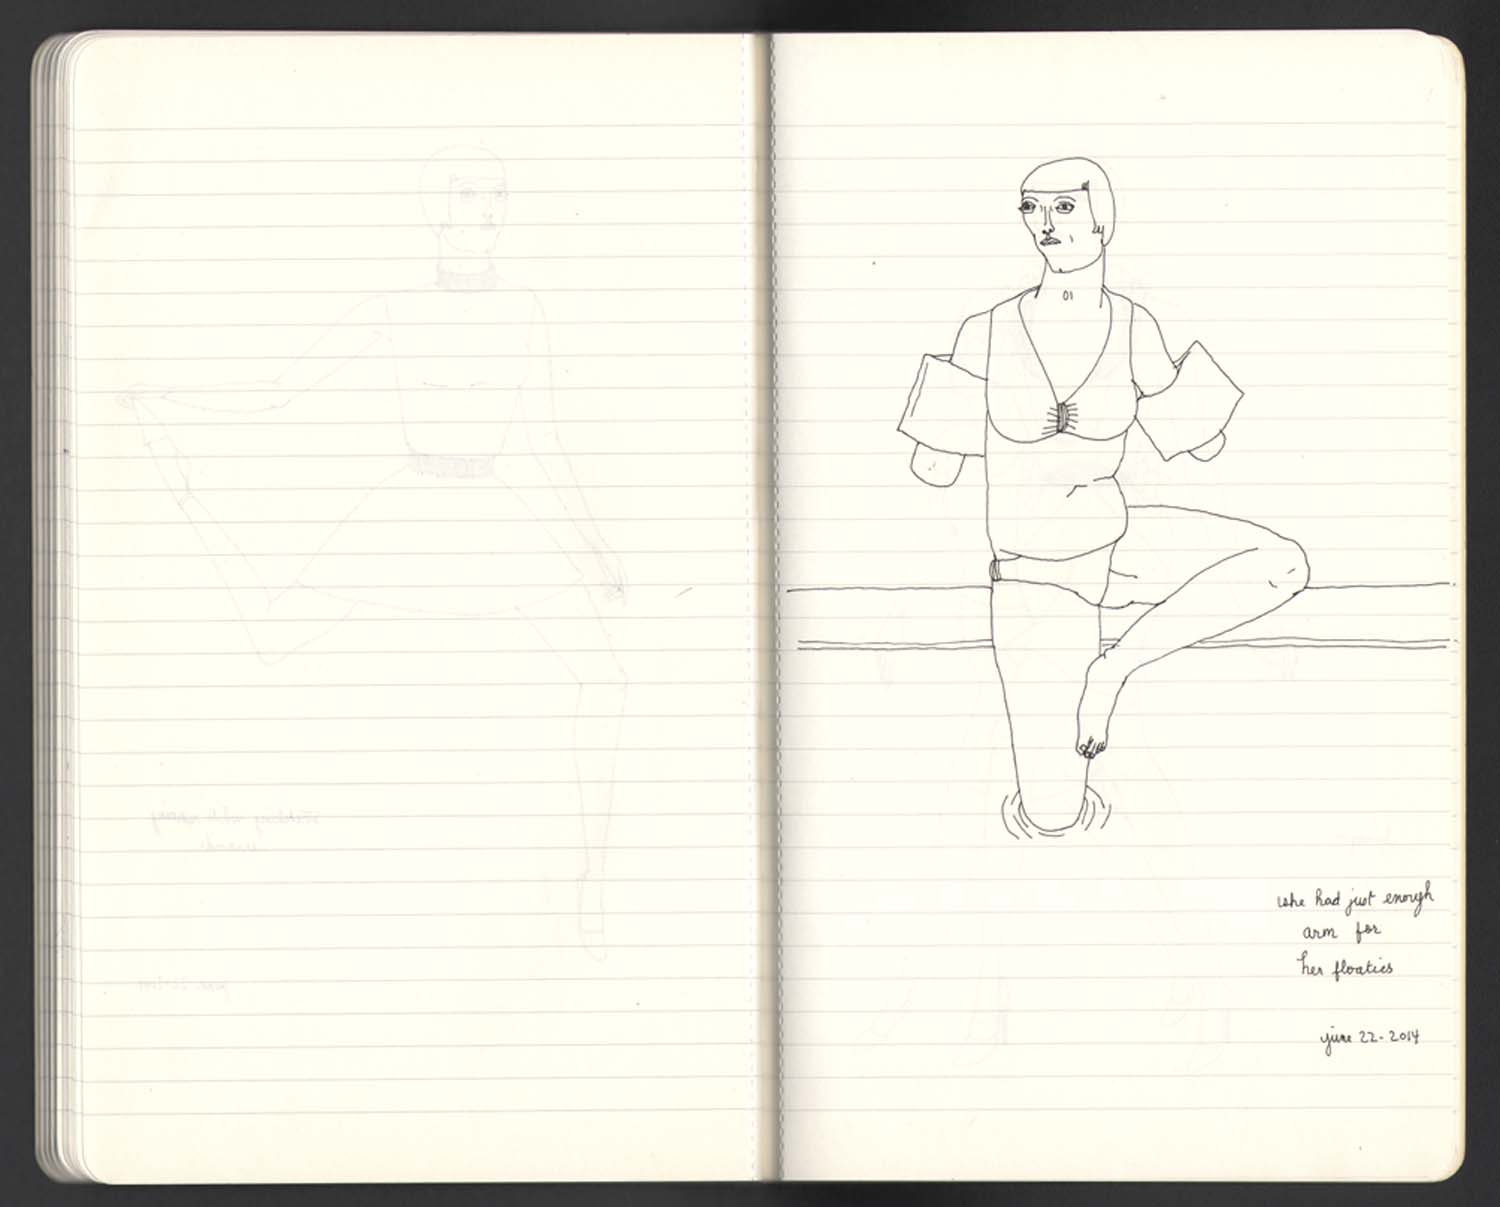 she had just enough
arm for
her floaties
june 22-2014